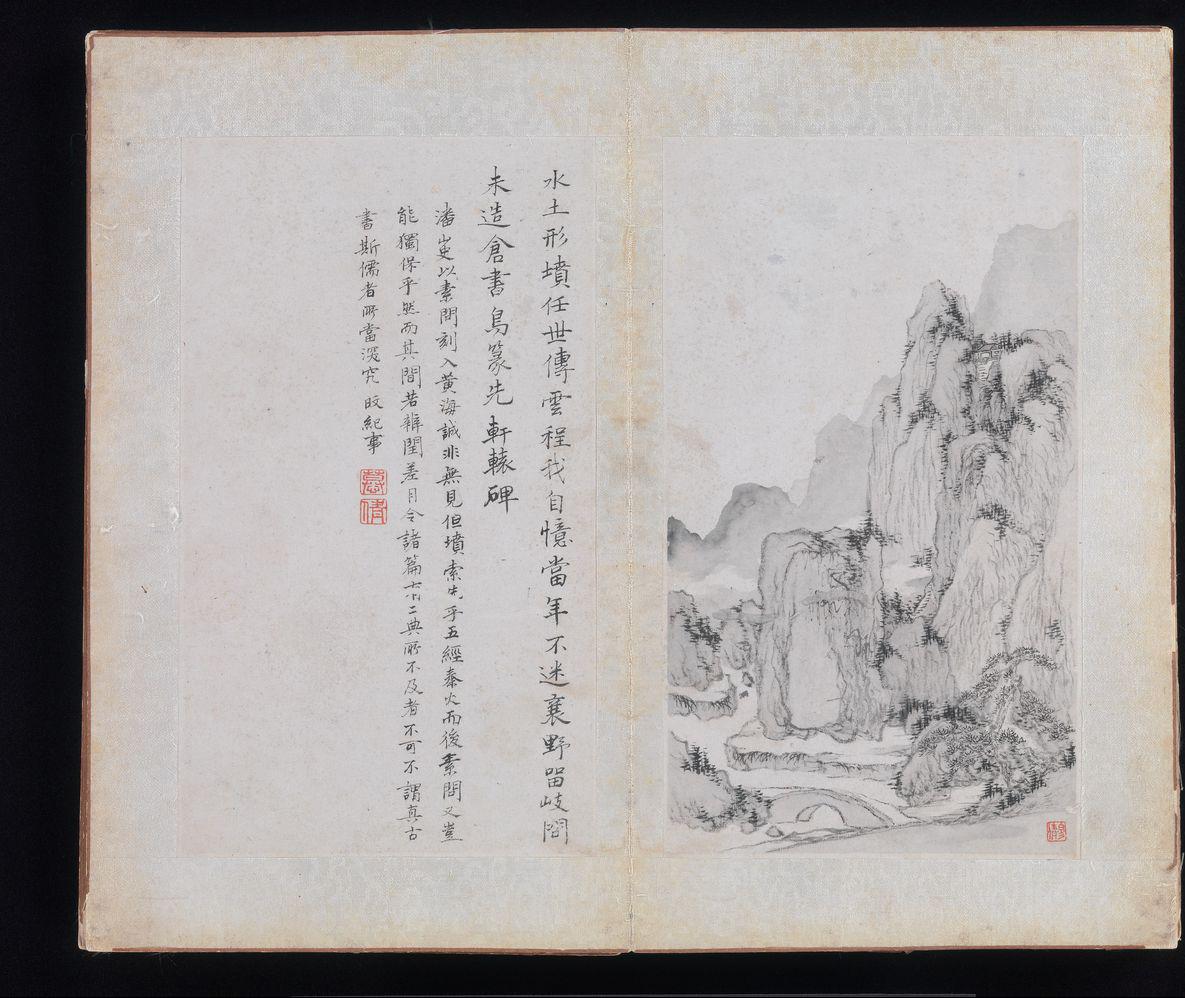 水土形墳任世傳雲程我自憶當年不迷襄野留岐問
未造倉書鳥篆先 軒轅碑
潘叟以素問刻入黃海誠非無見但墳索先乎五經秦火而後素問又豈
能獨保乎然而其間若辨閏差月令諸篇亦有二典所不及者不可不謂真古
書斯儒者所當深究 旼紀事